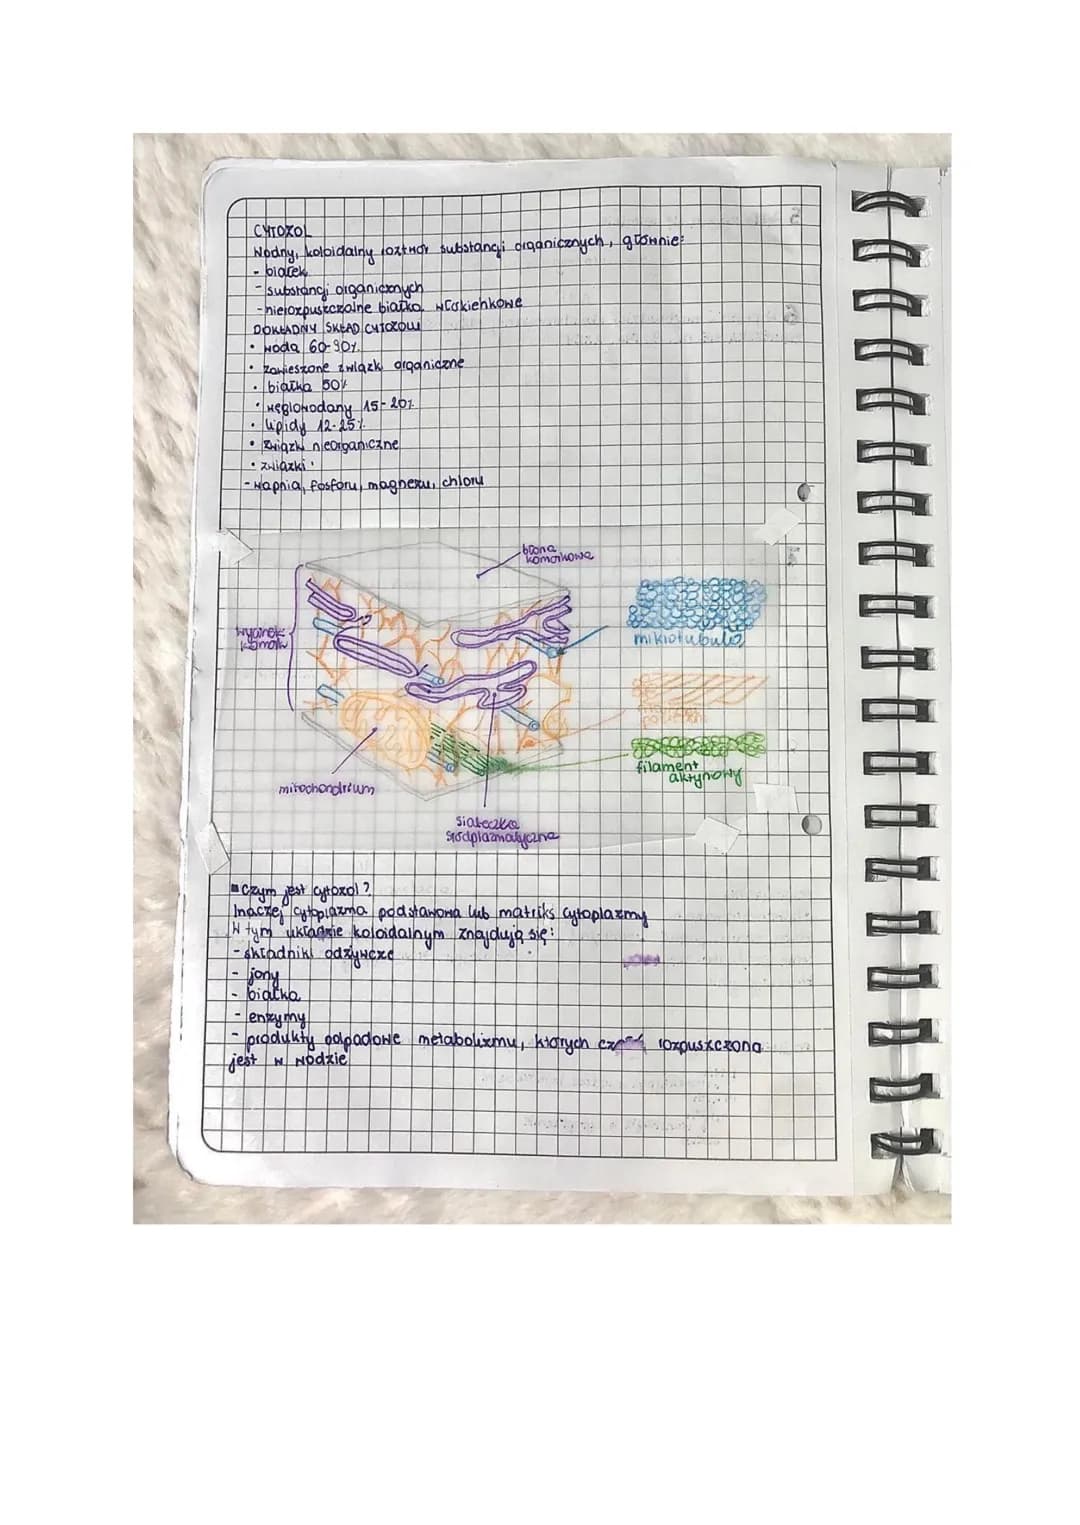 CYTOZOL
Wodny, koloidalny roztwór substancji organicznych, głównie:
- białek
- substancji organicznych
- nierozpuszczalne białka włókienkowe
DOKŁADNY SKŁAD CYTOZOLU
• woda 60-90%
• zawieszone związki organiczne
• białka 50%
• węglowodany 15-20%
• lipidy 12-25%
• związki nieorganiczne
• związki:
- wapnia, fosforu, magnezu, chloru
błona
komórkowa
wycinek
komórki
mikrotubule
filament
aktynowy
mitochondrium
siateczka
śródplazmatyczna
Czym jest cytozol?
Inaczej cytoplazma podstawowa lub matriks cytoplazmy
W tym układzie koloidalnym znajdują się:
- składniki odżywcze
- jony
- białka
- enzymy
- produkty odpadowe metabolizmu, których część rozpuszczona
jest w wodzie